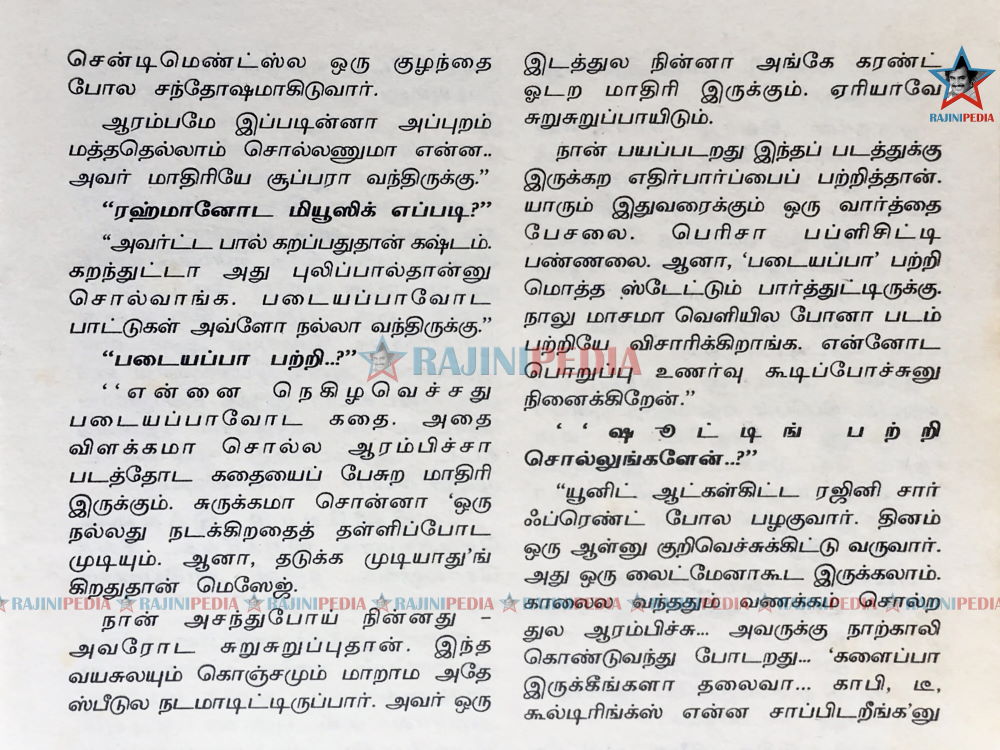 சென்டிமெண்ட்ஸ்ல ஒரு குழந்தை
போல சந்தோஷமாகிடுவார்.
ஆரம்பமே இப்படின்னா அப்புறம்
மத்ததெல்லாம் சொல்லணுமா என்ன..
அவர் மாதிரியே சூப்பரா வந்திருக்கு.”
“ரஹ்மானோட மியூஸிக் எப்படி?”
“அவர்ட்ட பால் கறப்பதுதான் கஷ்டம்.
கறந்துட்டா அது புலிப்பால்தான்னு
சொல்வாங்க. படையப்பாவோட
பாட்டுகள் அவ்ளோ நல்லா வந்திருக்கு.”
“படையப்பா பற்றி..?”
‘‘என்னை நெகிழவெச்சது
படையப்பாவோட கதை. அதை
விளக்கமா சொல்ல ஆரம்பிச்சா
படத்தோட கதையைப் பேசுற மாதிரி
இருக்கும். சுருக்கமா சொன்னா ‘ஒரு
நல்லது நடக்கிறதைத் தள்ளிப்போட
முடியும். ஆனா, தடுக்க முடியாது’ங்
கிறதுதான் மெஸேஜ்.
நான் அசந்துபோய் நின்னது –
அவரோட சுறுசுறுப்புதான். இந்த
வயசுலயும் கொஞ்சமும் மாறாம அதே
ஸ்பீடுல நடமாடிட்டிருப்பார். அவர் ஒரு
இடத்துல நின்னா அங்கே கரண்ட்
ஓடற மாதிரி இருக்கும். ஏரியாவே
சுறுசுறுப்பாயிடும்.
நான் பயப்படறது இந்தப் படத்துக்கு
இருக்கற எதிர்பார்ப்பைப் பற்றித்தான்.
யாரும் இதுவரைக்கும் ஒரு வார்த்தை
பேசலை. பெரிசா பப்ளிசிட்டி
பண்ணலை. ஆனா, ‘படையப்பா’ பற்றி
மொத்த ஸ்டேட்டும் பார்த்துட்டிருக்கு.
நாலு மாசமா வெளியில போனா படம்
பற்றியே விசாரிக்கிறாங்க. என்னோட
பொறுப்பு உணர்வு கூடிப்போச்சுனு
நினைக்கிறேன்.”
‘‘ஷூட்டிங் பற்றி
சொல்லுங்களேன்..?”
“யூனிட் ஆட்கள்கிட்ட ரஜினி சார்
ஃப்ரெண்ட் போல பழகுவார். தினம்
ஒரு ஆள்னு குறிவெச்சுக்கிட்டு வருவார்.
அது ஒரு லைட்மேனாகூட இருக்கலாம்.
காலைல வந்ததும் வணக்கம் சொல்ற
துல ஆரம்பிச்சு... அவருக்கு நாற்காலி
கொண்டுவந்து போடறது... ‘களைப்பா
இருக்கீங்களா தலைவா... காபி, டீ,
கூல்டிரிங்க்ஸ் என்ன சாப்பிடறீங்க’னு
RAJINIPEDIA
RAJINIPEDIA
RAJINIPEDIA RAJINIPEDIA RAJINIPEDIA RAJINIPEDIA RAJINIPEDIA RAJINIPEDIA RAJINIPEDIA RAJINIPEDIA